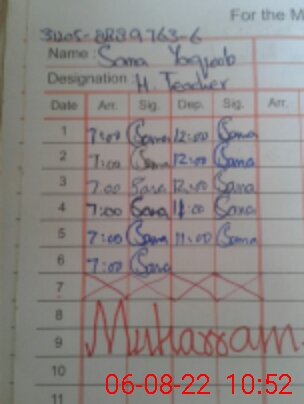 For the M
Name : Sama Yaqoob
Designation : H. Teacher
Date Arr. Sig. Dep. Sig. Arr.
1 7:00 Sama 12:00 Sama
2 7:00 Sama 12:00 Sama
3 7:00 Sama 12:00 Sama
4 7:00 Sama 11:00 Sama
5 7:00 Sama 11:00 Sama
6 7:00 Sama
7
8
Muharram
9
10
11
06-08-22 10:52